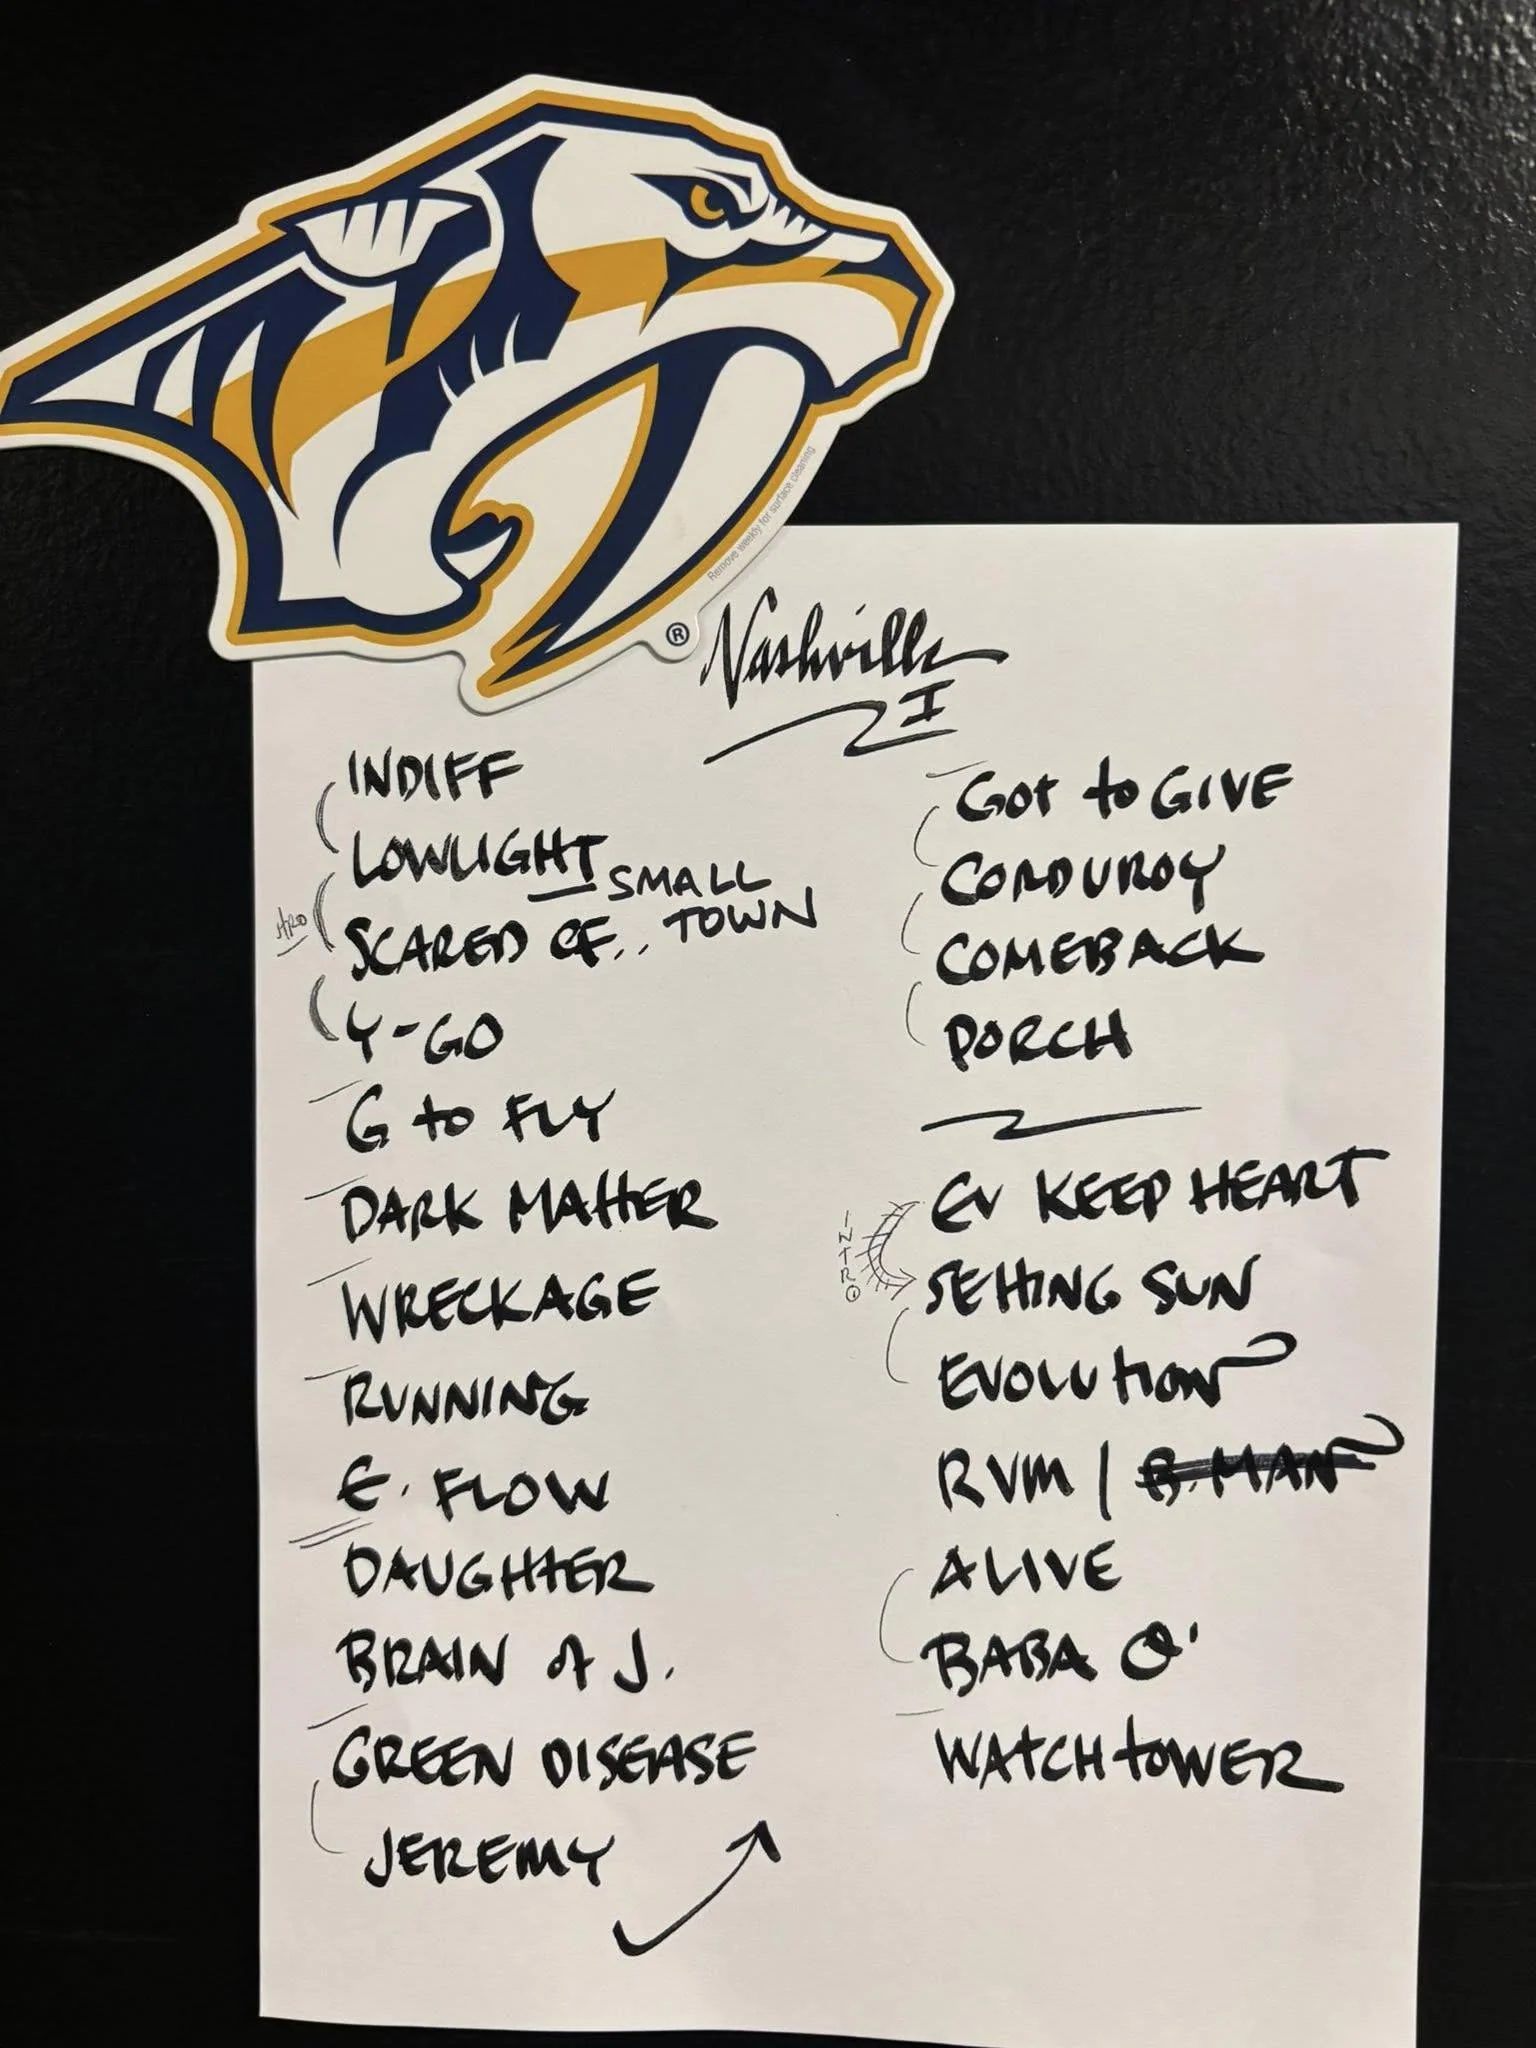 Remove weekly for surface cleaning
®
Nashville
I
INDIFF
LOWLIGHT
SMALL
TOWN
SCARED OF..
Y-GO
G to FLY
DARK MATTER
WRECKAGE
RUNNING
E. FLOW
DAUGHTER
BRAIN of J.
GREEN DISEASE
JEREMY
GOT to GIVE
CORDUROY
COMEBACK
PORCH
EV KEEP HEART
INTRO
SETTING SUN
EVOLUTION
RVM / B. MAN
ALIVE
BABA O'
WATCHTOWER